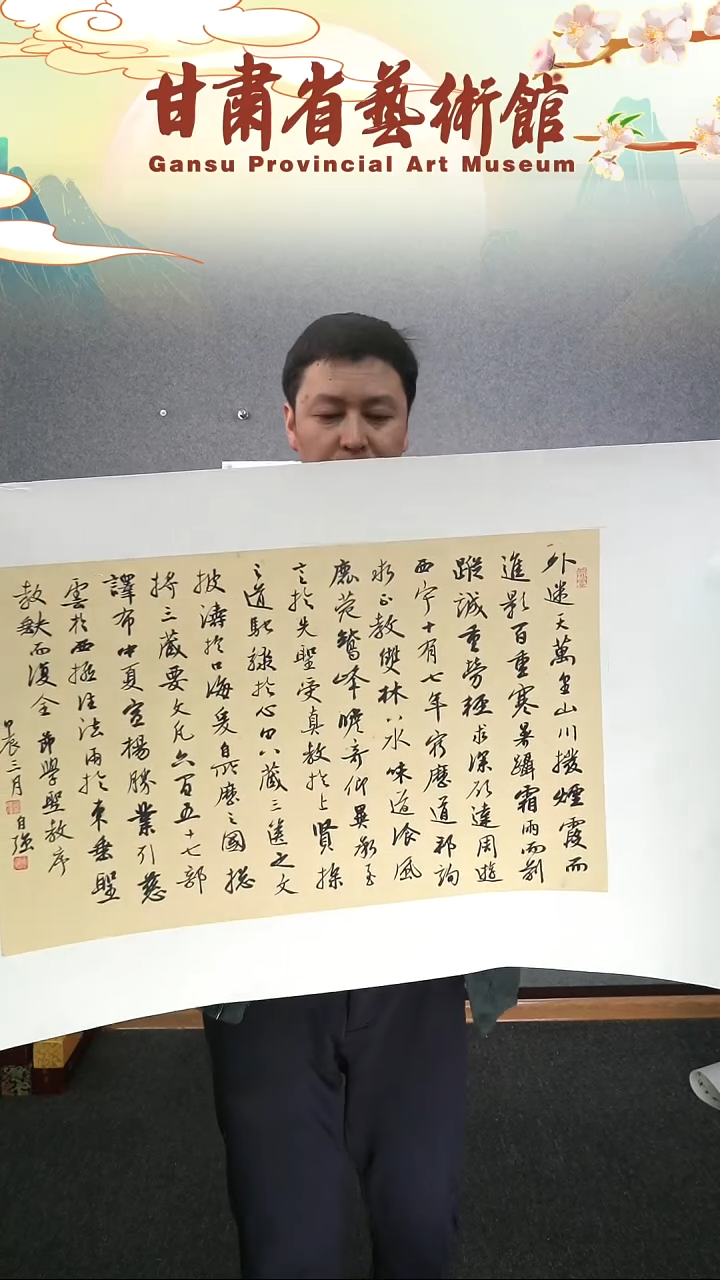 甘肅省藝術館
Gansu Provincial Art Museum
外迷天萬里山川撥煙霞而
進影百重寒暑躡霜雨而前
蹤誠重勞輕求深願達周遊
西宇十有七年窮歷道邦詢
求正教雙林八水味道飡風
鹿菀鷲峰瞻奇仰異承至
言於先聖受真教於上賢探
之道馳驟於心田八藏三篋之文
波濤於口海爰自所歷之國總
將三藏要文凡六百五十七部
譯布中夏宣揚勝業引慈
雲於西極注法雨於東垂聖
教缺而復全 節學聖教序
甲辰三月 自強